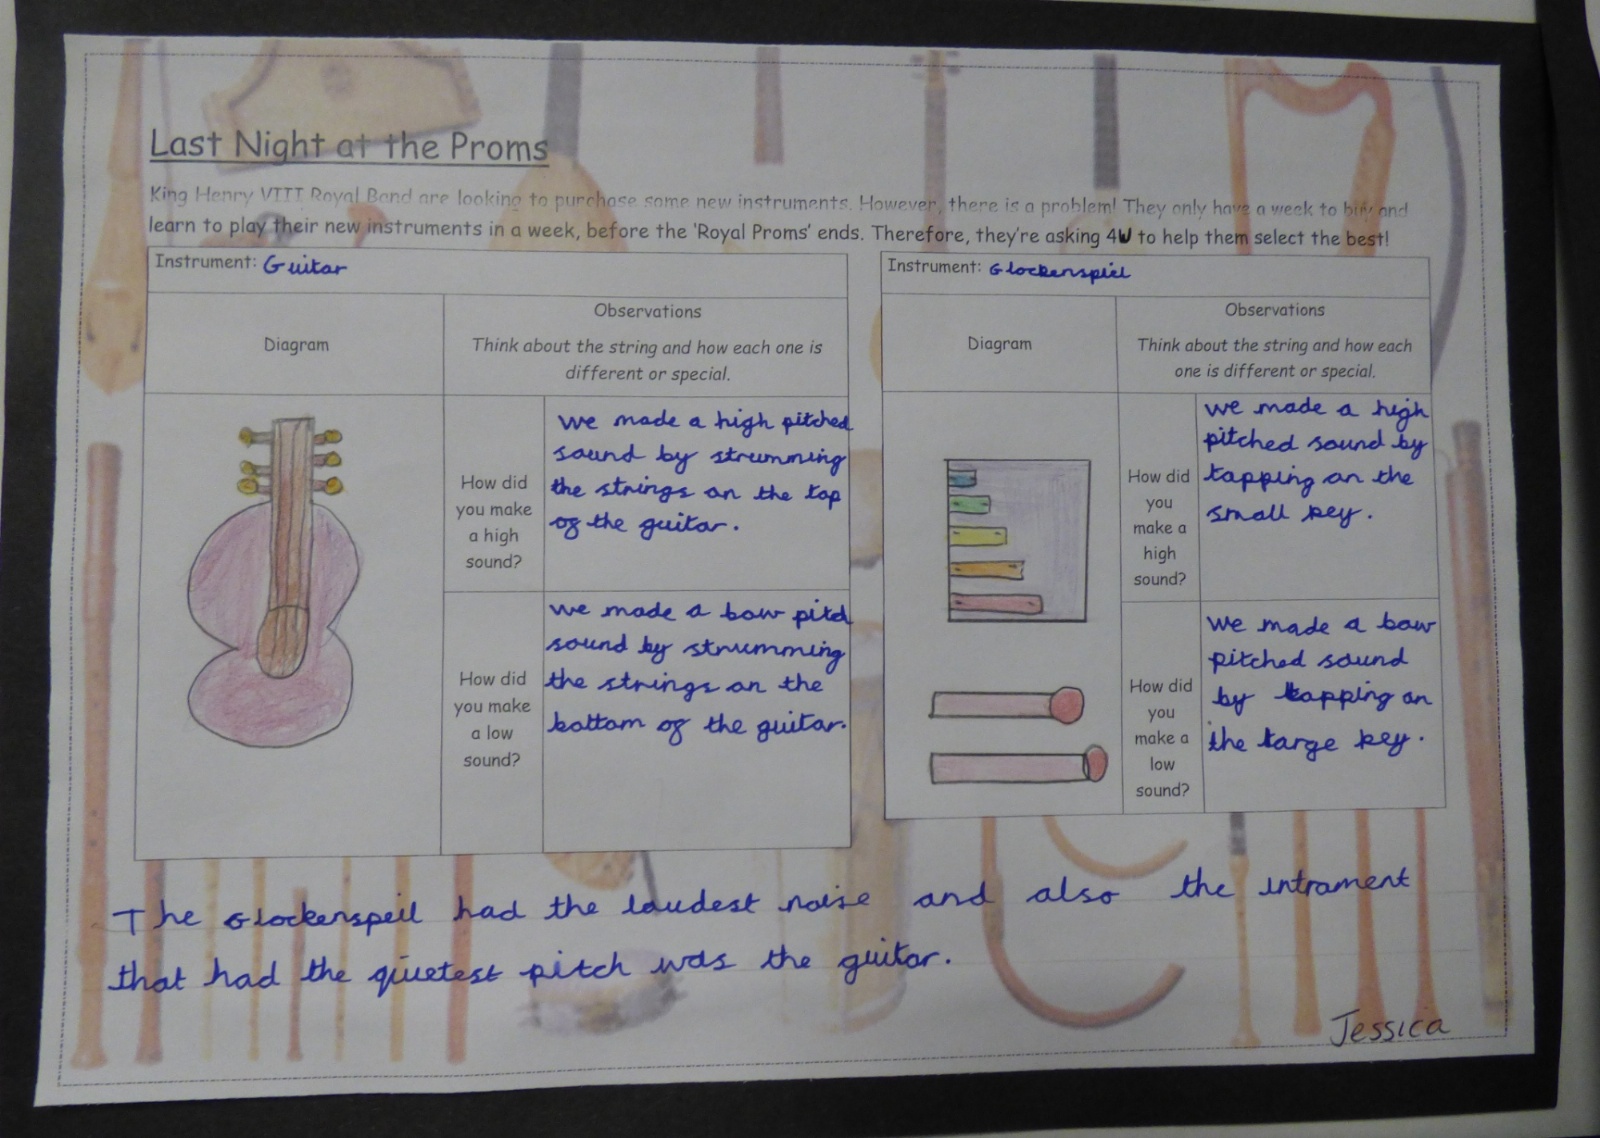 Last Night at the Proms
King Henry VIII Royal Band are looking to purchase some new instruments. However, there is a problem! They only have a week to buy and
learn to play their new instruments in a week, before the 'Royal Proms' ends. Therefore, they're asking 4W to help them select the best!
Instrument: Guitar
Diagram
Observations
Think about the string and how each one is
different or special.
How did
you make
a high
sound?
we made a high pitched
sound by strumming
the strings on the top
of the guitar.
How did
you make
a low
sound?
we made a bow pitch
sound by strumming
the strings on the
bottom of the guitar.
Instrument: Glockenspiel
Diagram
Observations
Think about the string and how each
one is different or special.
How did
you
make a
high
sound?
we made a high
pitched sound by
tapping on the
small key.
How did
you
make a
low
sound?
we made a bow
pitched sound
by tapping on
the large key.
The Glockenspeil had the loudest noise and also the intrament
that had the qiuetest pitch was the guitar.
Jessica